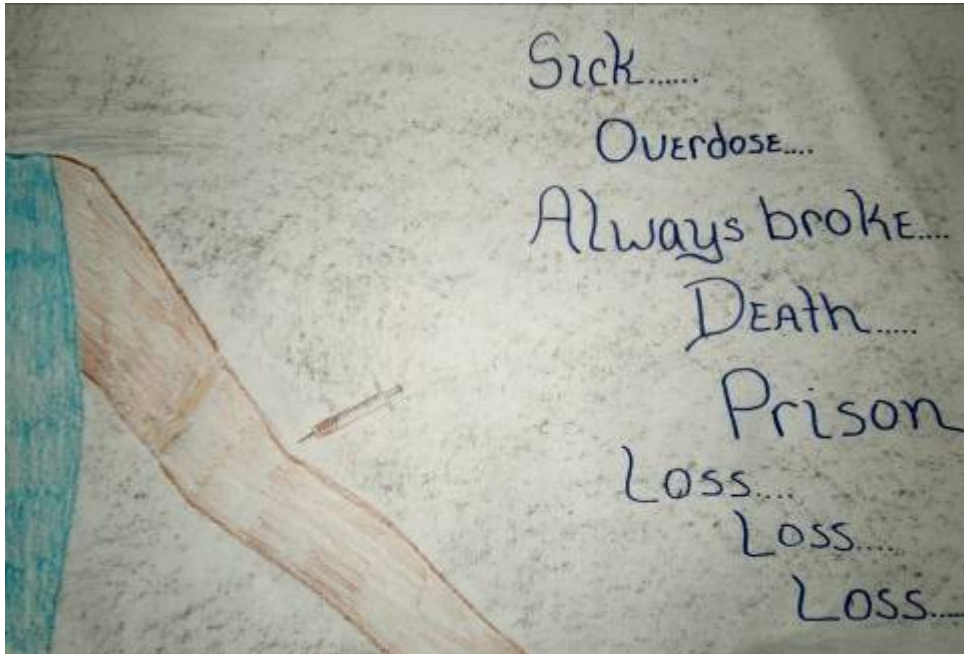 Sick......
Overdose....
Always broke....
Death.....
Prison
Loss....
Loss.....
Loss.....